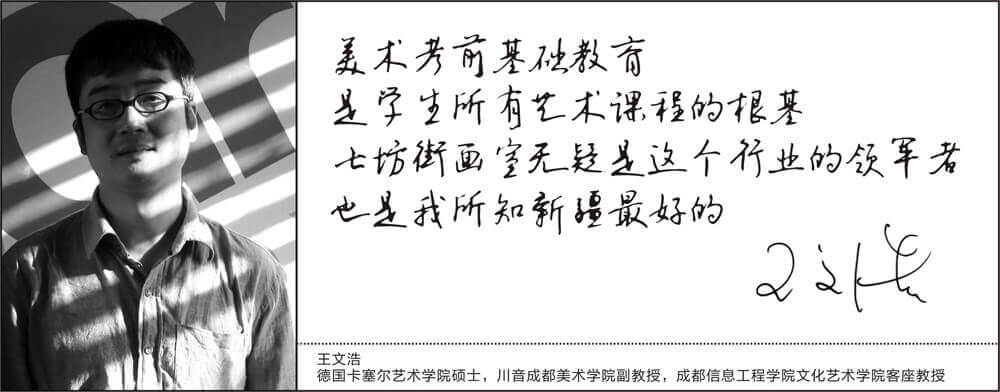 美术考前基础教育
是学生所有艺术课程的根基
七坊街画室无疑是这个行业的领军者
也是我所知新疆最好的
王文浩
王文浩
德国卡塞尔艺术学院硕士，川音成都美术学院副教授，成都信息工程学院文化艺术学院客座教授